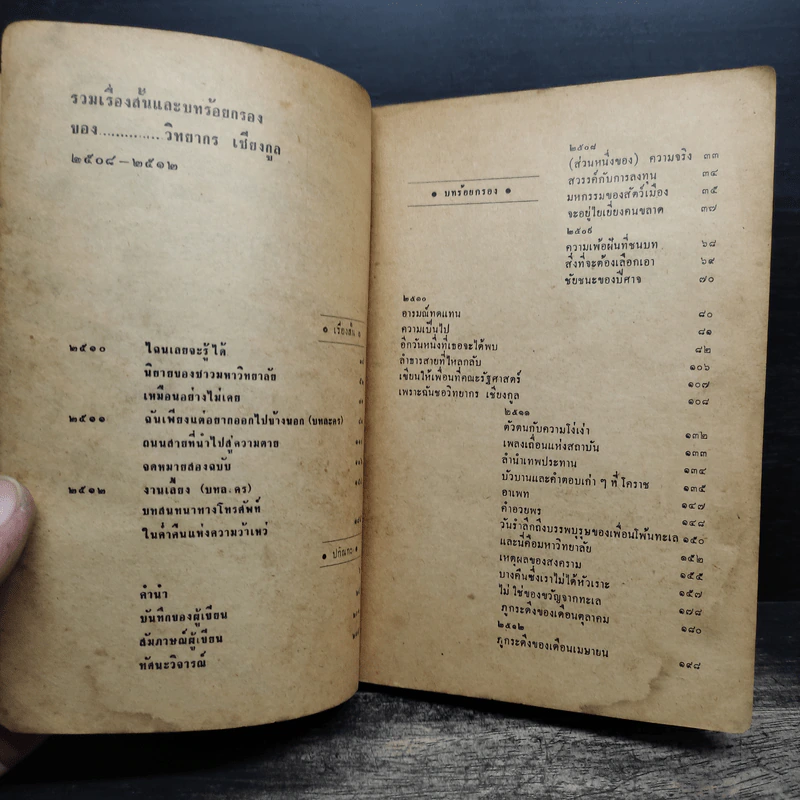 รวมเรื่องสั้นและบทร้อยกรอง
ของ.............. วิทยากร เชียงกูล
๒๕๐๘ — ๒๕๑๒
• เรื่องสั้น •
๒๕๑๐ ไฉนเลยจะรู้ได้
นิยายของชาวมหาวิทยาลัย
เหมือนอย่างไม่เคย
๒๕๑๑ ฉันเพียงแต่อยากออกไปข้างนอก (บทละคร)
ถนนสายที่นำไปสู่ความตาย
จดหมายสองฉบับ
๒๕๑๒ งานเลี้ยง (บทละคร)
บทสนทนาทางโทรศัพท์
ในค่ำคืนแห่งความว้าเหว่
• ปกิณกะ •
คำนำ
บันทึกของผู้เขียน
สัมภาษณ์ผู้เขียน
ทัศนะวิจารณ์
• บทร้อยกรอง •
๒๕๐๘
(ส่วนหนึ่งของ) ความจริง ๓๓
สวรรค์กับการลงทุน ๓๔
มหกรรมของสัตว์เมือง ๓๕
จะอยู่ไยเยี่ยงคนขลาด ๓๗
๒๕๐๙
ความเพ้อฝันที่ชนบท ๖๘
สิ่งที่จะต้องเลือกเอา ๖๙
ชัยชนะของปีศาจ ๗๐
๒๕๑๐
อารมณ์ทดแทน ๘๐
ความเป็นไป ๘๑
อีกวันหนึ่งที่เธอจะได้พบ ๘๒
ลำธารสายที่ไหลกลับ ๑๐๖
เขียนให้เพื่อนที่คณะรัฐศาสตร์ ๑๐๗
เพราะฉันชอวิทยากร เชียงกูล ๑๐๘
๒๕๑๑
ตัวตนกับความโง่เง่า ๑๓๒
เพลงเถื่อนแห่งสถาบัน ๑๓๓
ลำนำเทพประทาน ๑๓๔
บัวบานและคำตอบเก่า ๆ ที่โคราช ๑๓๕
อาเพท ๑๔๗
คำอวยพร ๑๔๘
วันรำลึกถึงบรรพบุรุษของเพื่อนโพ้นทะเล ๑๕๐
และนี่คือมหาวิทยาลัย ๑๕๒
เหตุผลของสงคราม ๑๕๕
บางคืนซึ่งเราไม่ได้หัวเราะ ๑๕๗
ไม่ใช่ของขวัญจากทะเล ๑๗๘
ภูกระดึงของเดือนตุลาคม ๑๘๐
๒๕๑๒
ภูกระดึงของเดือนเมษายน ๑๙๘